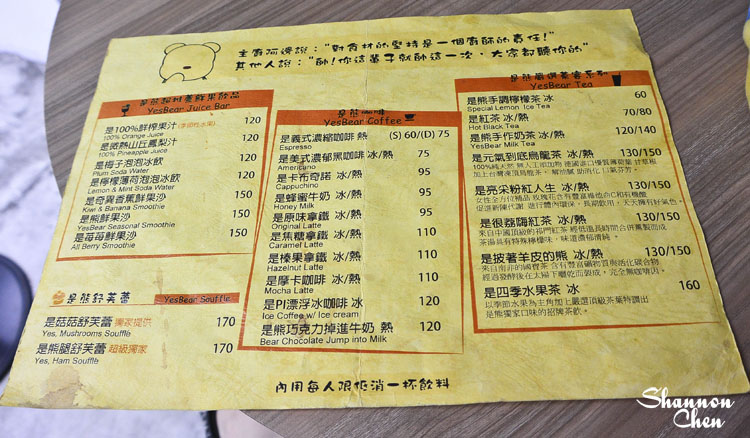 主廚阿邊說："對食材的堅持是一個廚師的責任！"
其他人說："帥！你這輩子就帥這一次，大家都聽你的"
是熊超川養鮮果飲品
YesBear Juice Bar
是100%鮮榨果汁 120
100% Orange Juice
是微熱山丘鳳梨汁 120
100% Pineapple Juice
是梅子泡泡冰飲 120
Plum Soda Water
是檸檬薄荷泡泡冰飲 120
Lemon & Mint Soda Water
是奇異香蕉鮮果沙 150
Kiwi & Banana Smoothie
是熊鮮果沙 150
YesBear Seasonal Smoothie
是莓莓鮮果沙 150
All Berry Smoothie
是熊舒芙蕾
YesBear Souffle
是菇菇舒芙蕾 獨家提供 170
Yes, Mushrooms Soufflé
是熊腿舒芙蕾 超級獨家 170
Yes, Ham Soufflé
是熊咖啡
YesBear Coffee
是義式濃縮咖啡 熱 (S) 60/(D) 75
Espresso
是美式濃郁黑咖啡 冰/熱 75
Americano
是卡布奇諾 冰/熱 95
Cappuchino
是蜂蜜牛奶 冰/熱 95
Honey Milk
是原味拿鐵 冰/熱 95
Original Latte
是焦糖拿鐵 冰/熱 110
Caramel Latte
是榛果拿鐵 冰/熱 110
Hazelnut Latte
是摩卡咖啡 冰/熱 110
Mocha Latte
是PI漂浮冰咖啡 冰 120
Ice Coffee w/ Ice cream
是熊巧克力掉進牛奶 熱 120
Bear Chocolate Jump into Milk
是熊嚴選養蜜系列
YesBear Tea
是熊手調檸檬茶 冰 60
Special Lemon Ice Tea
是紅茶 冰/熱 70/80
Hot Black Tea
是熊手作奶茶 冰/熱 120/140
YesBear Milk Tea
是元氣到底烏龍茶 冰/熱 130/150
是亮采粉紅人生 冰/熱 130/150
是很羇嗨紅茶 冰/熱 130/150
是披著羊皮的熊 冰/熱 130/150
是四季水果茶 冰 160
以季節水果為主角加上嚴選頂級茶葉特調出
是熊獨家口味的招牌茶飲。
內用每人限低消一杯飲料
Shannon
Chen